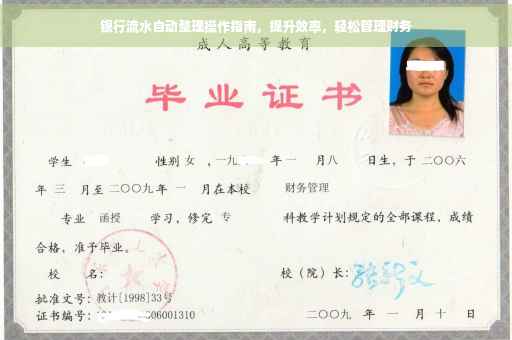 银行流水自动整理操作指南，提升效率，轻松管理财务
成人高等教育
毕业证书
学生 性别 女 ，一九 年 一 月 八 日生，于 二〇〇六
年 三 月至 二〇〇九 年 一 月在本校 财务管理
专业 函授 学习，修完 专 科教学计划规定的全部课程，成绩
合格，准予毕业。
校 名： 校（院）长：
批准文号：教计[1998]33号
证书编号： 06001310 二〇〇九 年 一 月 十 日